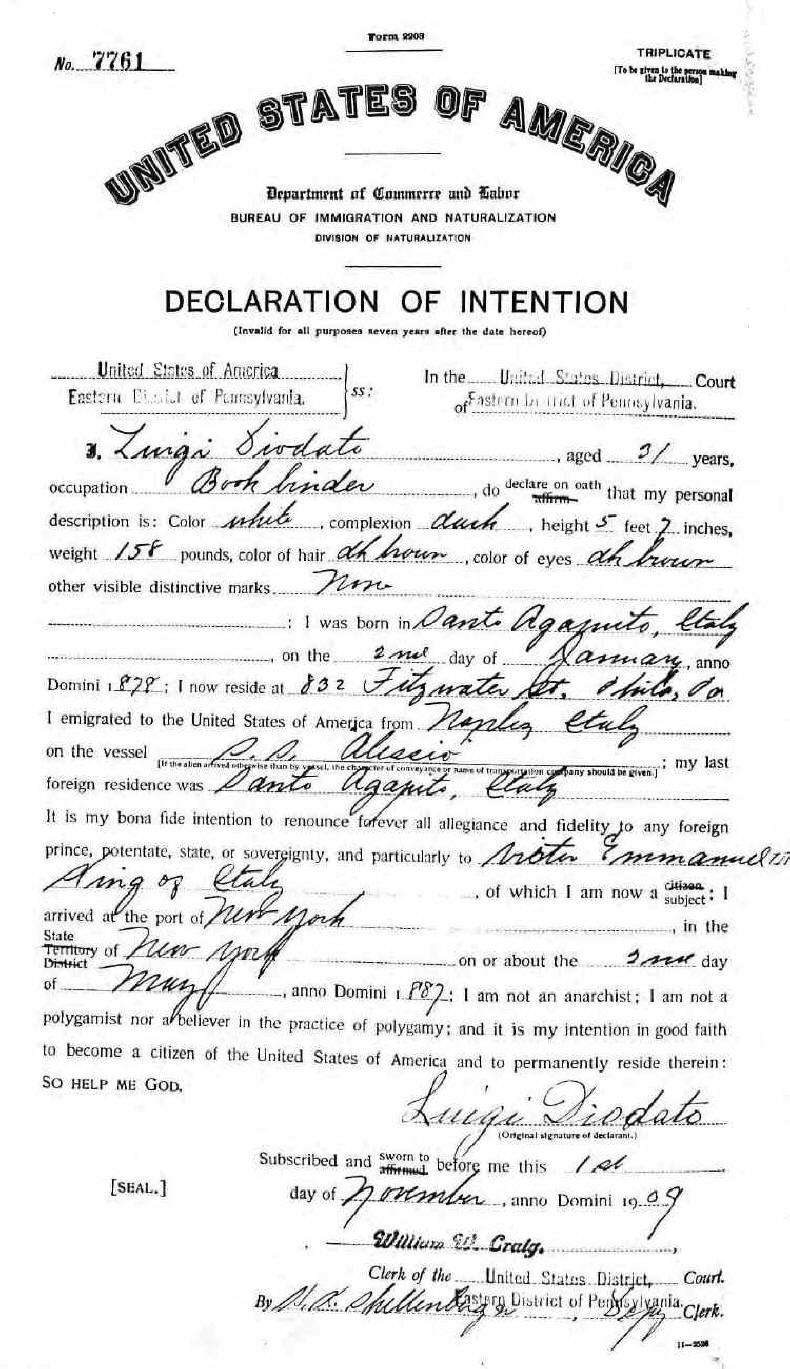 Form 2203
No. 7761
TRIPLICATE
[To be given to the person making
the Declaration]
UNITED STATES OF AMERICA
Department of Commerce and Labor
BUREAU OF IMMIGRATION AND NATURALIZATION
DIVISION OF NATURALIZATION
DECLARATION OF INTENTION
(Invalid for all purposes seven years after the date hereof)
United States of America
Eastern District of Pennsylvania. ss:
In the United States District, Court
of Eastern District of Pennsylvania.
I, Luigi Diodato, aged 31 years,
occupation Book binder, do declare on oath affirm that my personal
description is: Color white, complexion dark, height 5 feet 7 inches,
weight 158 pounds, color of hair dk brown, color of eyes dk brown
other visible distinctive marks None
; I was born in Santo Agapito, Italy
, on the 2nd day of January, anno
Domini 1878; I now reside at 832 Fitzwater St. Phila, Pa
I emigrated to the United States of America from Naples Italy
on the vessel S. S. Alessio; my last
[If the alien arrived otherwise than by vessel, the character of conveyance or name of transportation company should be given.]
foreign residence was Santo Agapito, Italy
It is my bona fide intention to renounce forever all allegiance and fidelity to any foreign
prince, potentate, state, or sovereignty, and particularly to Victor Emmanuel III
King of Italy, of which I am now a citizen subject; I
arrived at the port of New York, in the
State Territory District of New York on or about the 2nd day
of May, anno Domini 1887; I am not an anarchist; I am not a
polygamist nor a believer in the practice of polygamy; and it is my intention in good faith
to become a citizen of the United States of America and to permanently reside therein:
SO HELP ME GOD.
Luigi Diodato
(Original signature of declarant.)
Subscribed and sworn to affirmed before me this 1st
[SEAL.]
day of November, anno Domini 1909
William W. Craig,
Clerk of the United States District, Court.
Eastern District of Pennsylvania.
By Shellenberger, Depy Clerk.